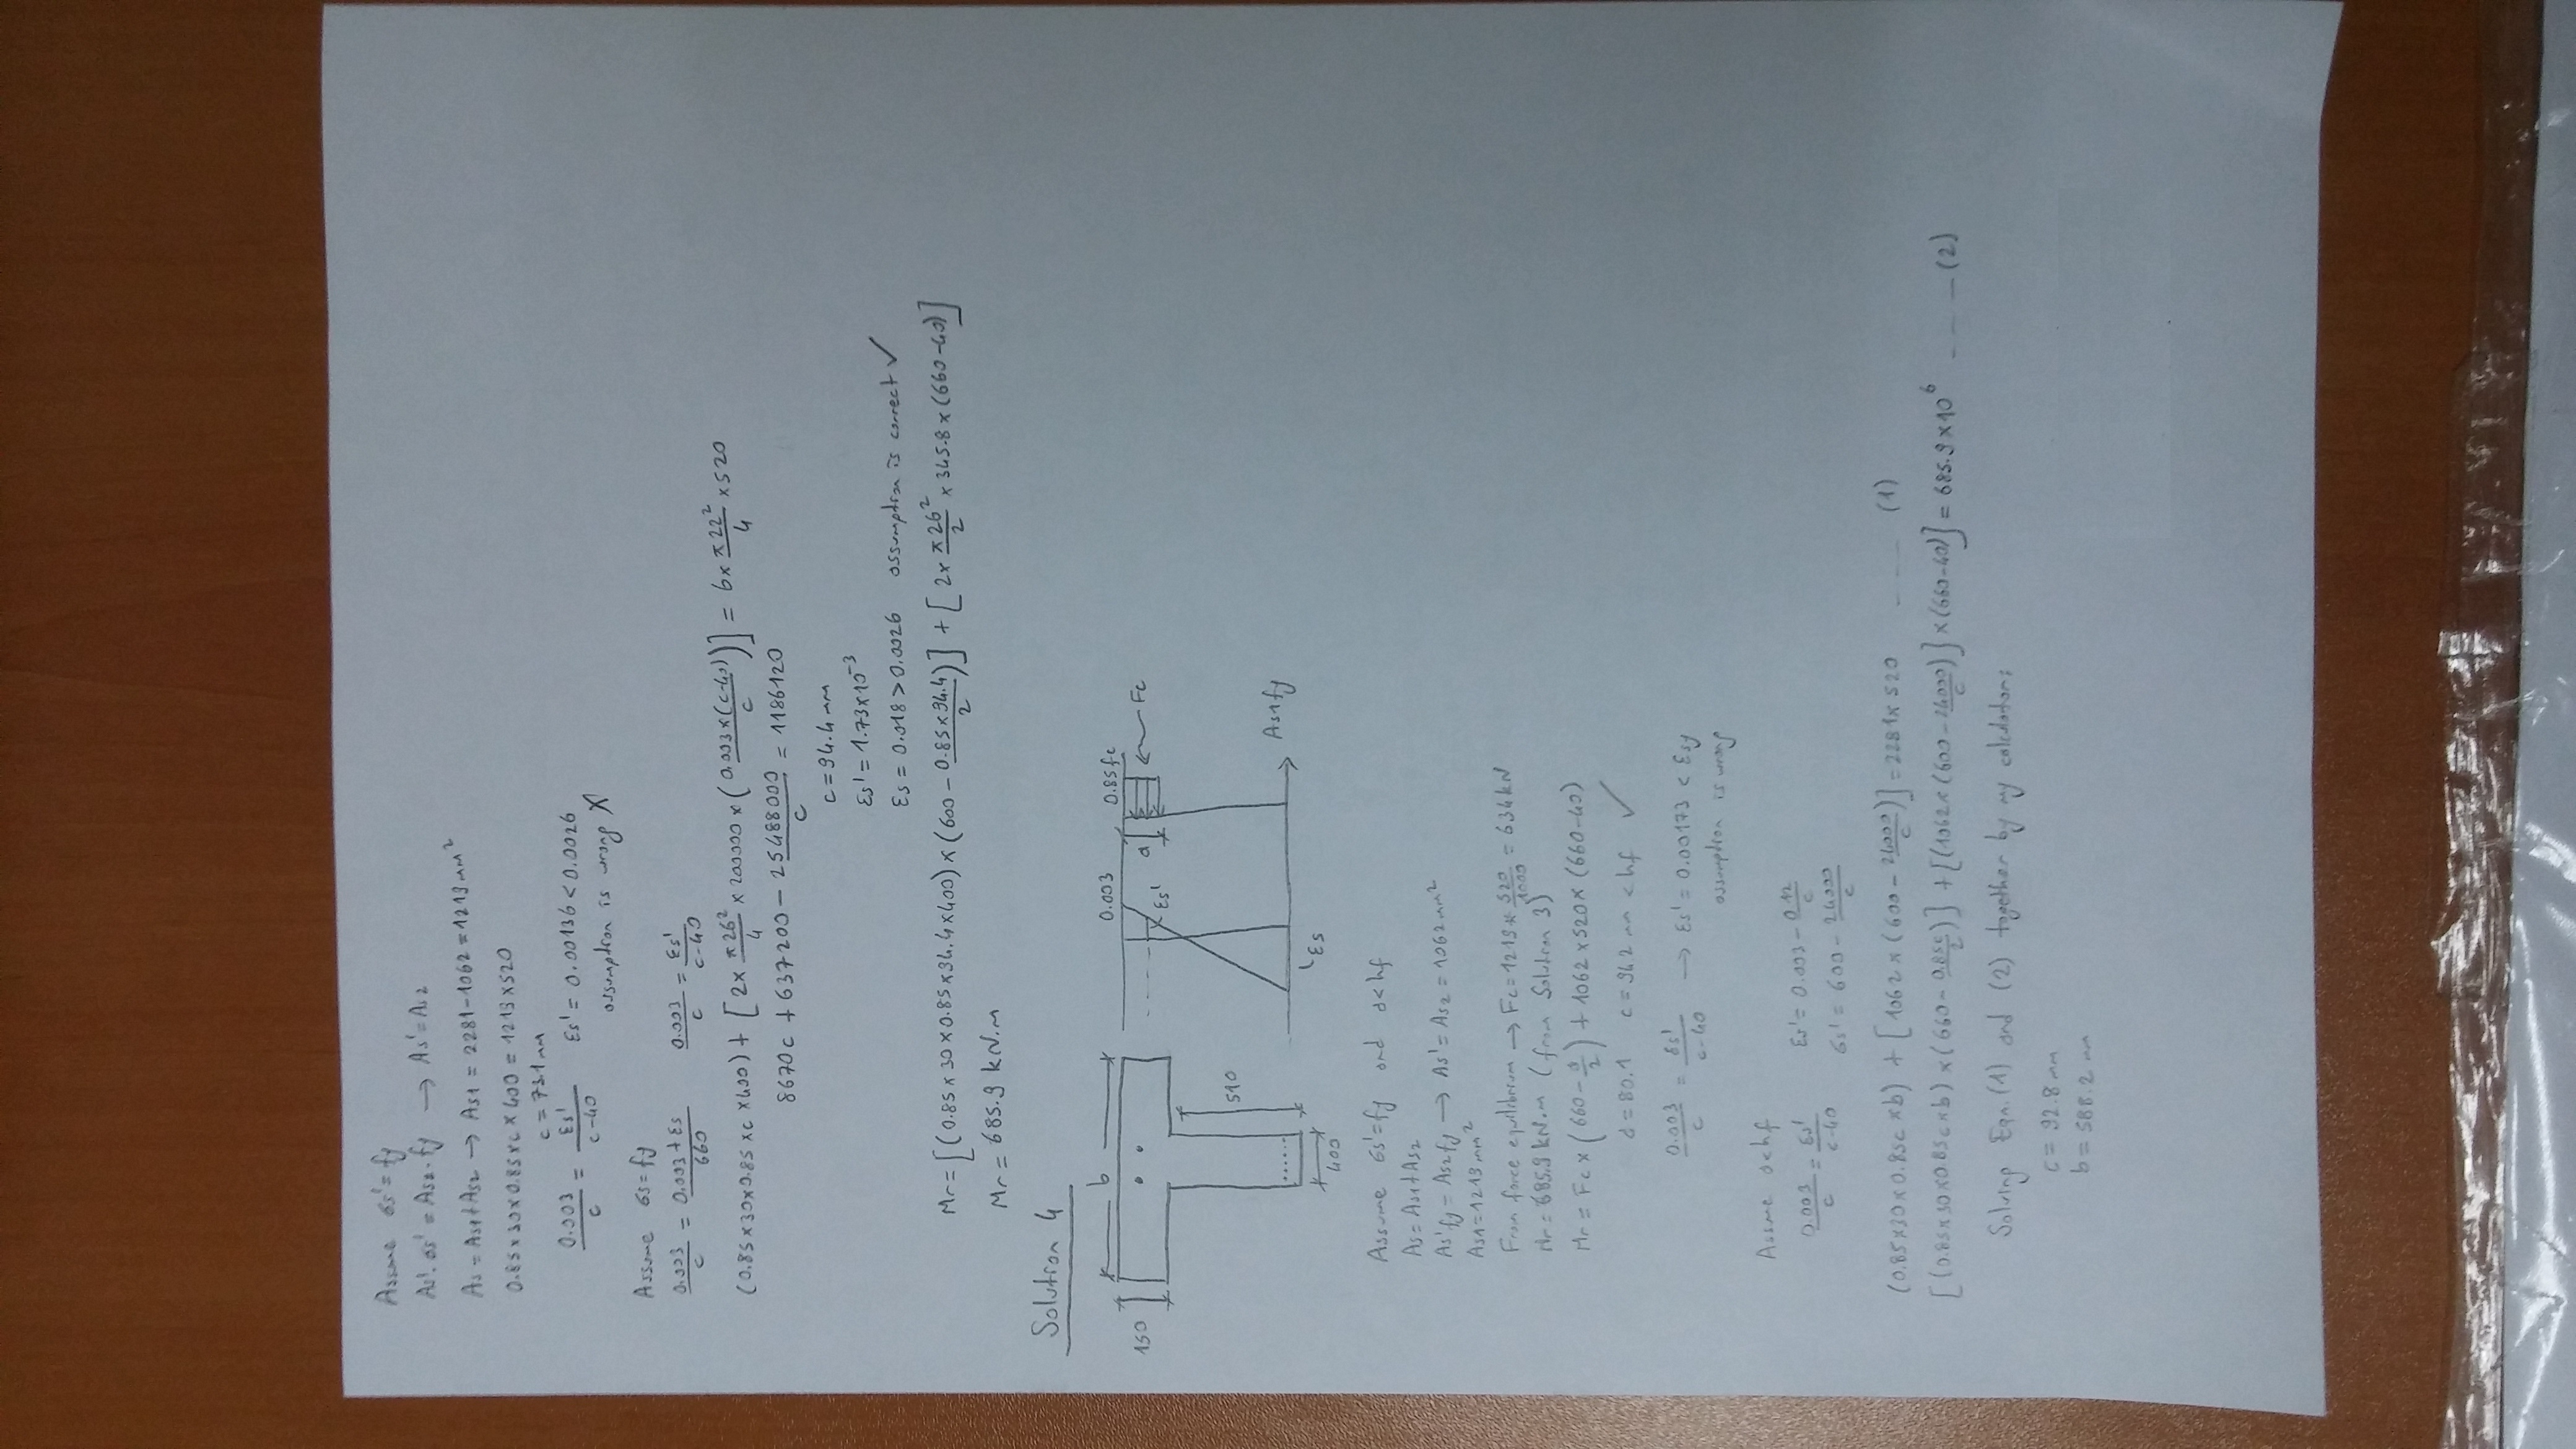 Assume σs' = fy
As'.σs' = As2.fy → As' = As2
As = As1+As2 → As1 = 2281-1062 = 1219 mm²
0.85×30×0.85×c×400 = 1219×520
c = 73.1 mm
0.003/c = εs'/(c-40)   εs' = 0.00136 < 0.0026
assumption is wrong X
Assume σs = fy
0.003/c = (0.003+εs)/660   0.003/c = εs'/(c-40)
(0.85×30×0.85×c×400) + [2×π26²/4×200000×(0.003×(c-40)/c)] = 6×π22²/4×520
8670c + 637200 - 25488000/c = 1186120
c = 94.4 mm
εs' = 1.73×10⁻³
εs = 0.018 > 0.0026   assumption is correct ✓
Mr = [(0.85×30×0.85×94.4×400)×(600 - 0.85×94.4/2)] + [2×π26²/2×345.8×(660-40)]
Mr = 685.9 kN.m
Solution 4
b
0.003
0.85fc
150
εs'
a
Fc
510
As1fy
εs
400
Assume σs'=fy and a<hf
As = As1+As2
As'fy = As2fy → As' = As2 = 1062 mm²
As1 = 1219 mm²
From force equilibrium → Fc = 1219×520/1000 = 634 kN
Mr = 685.9 kN.m (from Solution 3)
Mr = Fc×(660 - a/2) + 1062×520×(660-40)
a = 80.1   c = 94.2 mm < hf ✓
0.003/c = εs'/(c-40) → εs' = 0.00173 < εsy
assumption is wrong
Assme a<hf
0.003/c = εs'/(c-40)   εs' = 0.003 - 0.12/c
σs' = 600 - 24000/c
(0.85×30×0.85c×b) + [1062×(600 - 24000/c)] = 2281×520 ---- (1)
[(0.85×30×0.85c×b)×(660 - 0.85c/2)] + [(1062×(600 - 24000/c)]×(660-40)] = 685.9×10⁶ ---- (2)
Solving Eqn.(1) and (2) together by my calculator;
c = 92.8 mm
b = 588.2 mm